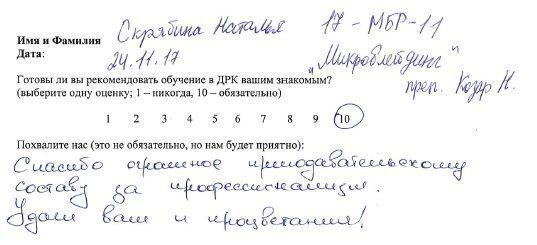 Имя и Фамилия Скрябина Наталья 17 - МБР - 11
Дата: 24.11.17 "Микроблейдинг"
Готовы ли вы рекомендовать обучение в ДРК вашим знакомым?
(выберите одну оценку; 1 – никогда, 10 – обязательно) преп. Козар Н.
1 2 3 4 5 6 7 8 9 10
Похвалите нас (это не обязательно, но нам будет приятно):
Спасибо огромное преподавательскому
составу за профессионализм.
Удачи вам и процветания!